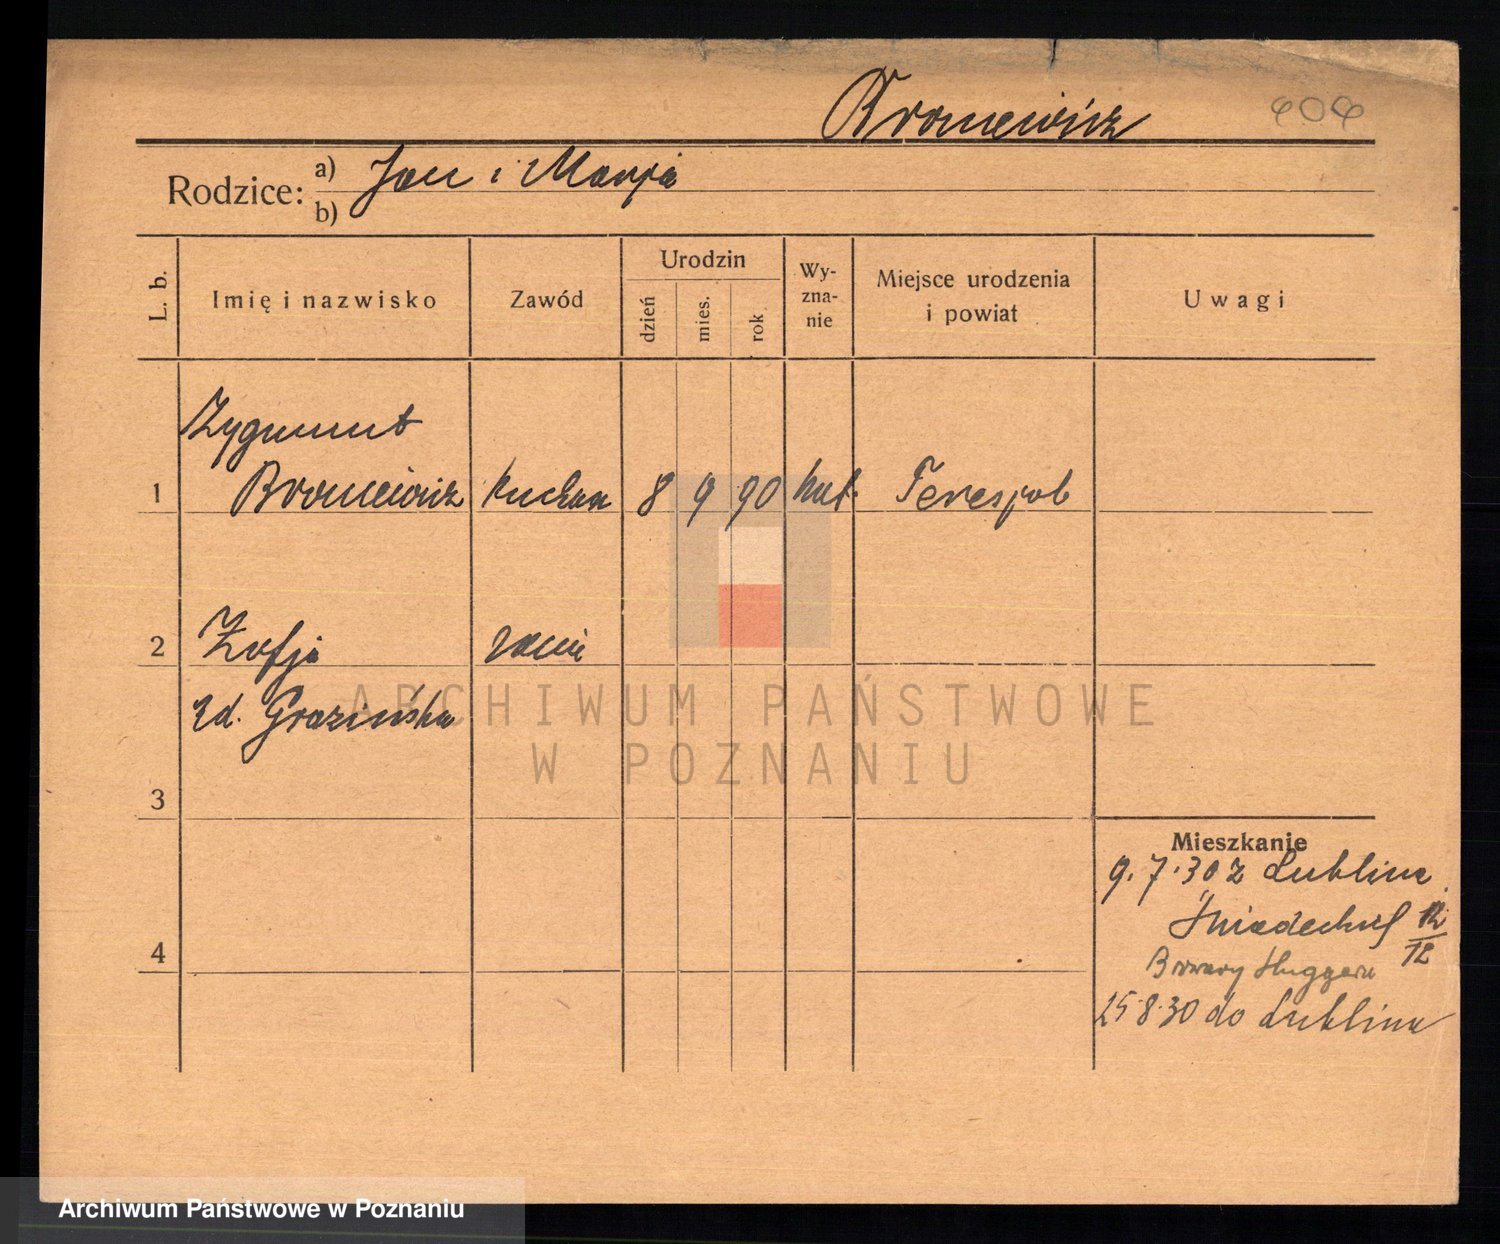 Broniewicz 404
Rodzice: a) Jan i Marja
b)
L. b. Imię i nazwisko Zawód Urodzin dzień mies. rok Wy-zna-nie Miejsce urodzenia i powiat Uwagi
Zygmunt
1 Broniewicz kucharz 8 9 90 kat. Terespol
2 Zofja
zd. Grozińska
3
Mieszkanie
9.7.30 z Lublina
Śniadeckich 12/12
4
Browary Huggera
25.8.30 do Lublina
ARCHIWUM PAŃSTWOWE
W POZNANIU
Archiwum Państwowe w Poznaniu